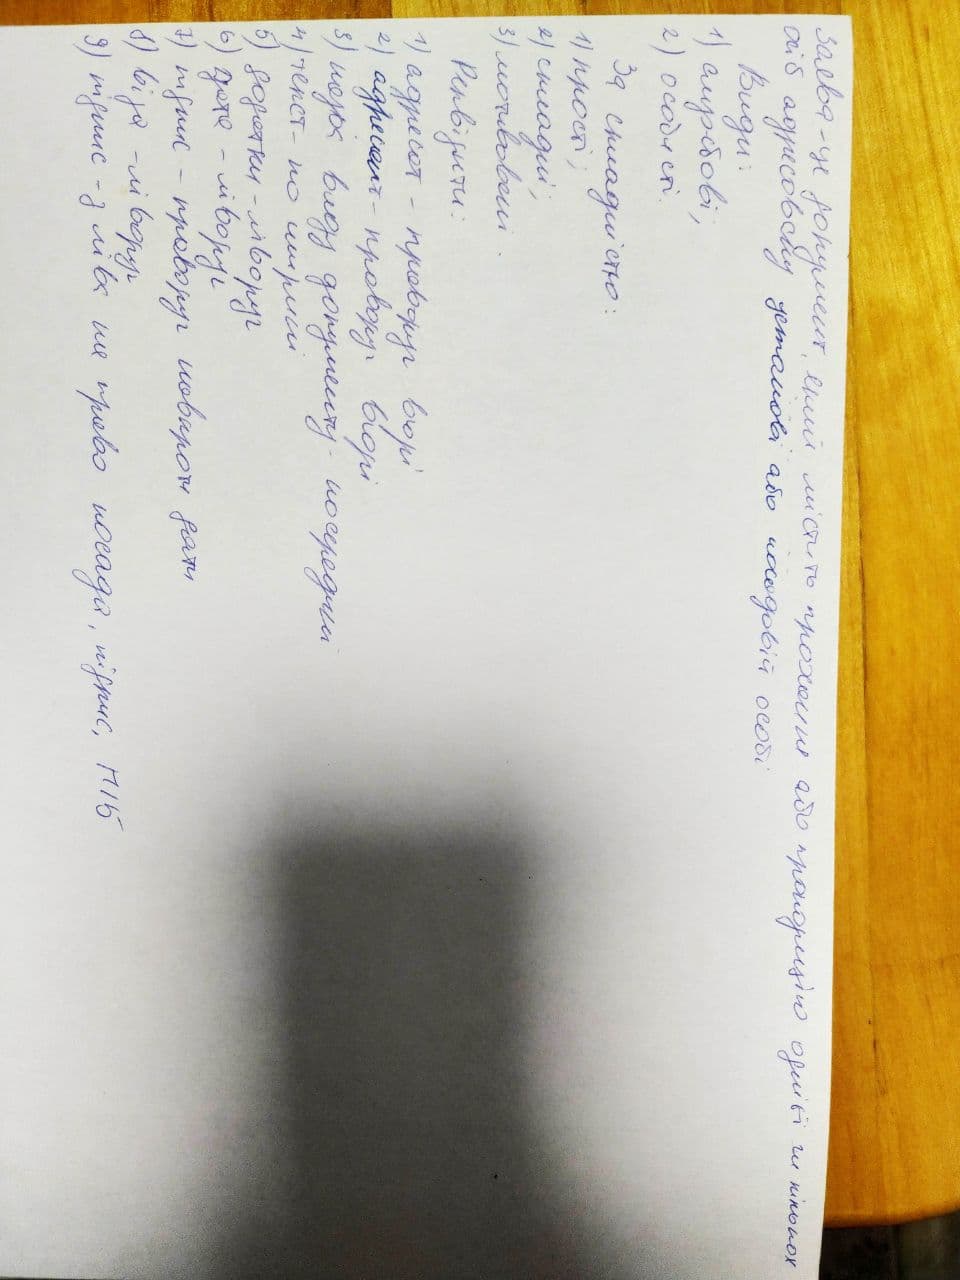 Заява - це документ, який містить прохання або пропозицію однієї чи кількох
осіб адресовану установі або посадовій особі
Види:
1) службові;
2) особисті.
За складністю:
1) прості;
2) складні;
3) мотивовані.
Реквізити:
1) адресат - праворуч вгорі
2) адресант - праворуч вгорі
3) назва виду документу - посередині
4) текст - по ширині
5) додатки - ліворуч
6) дата - ліворуч
7) підпис - праворуч навпроти дати
8) віза - ліворуч
9) підпис - з ліва на право посада, підпис, ПІБ